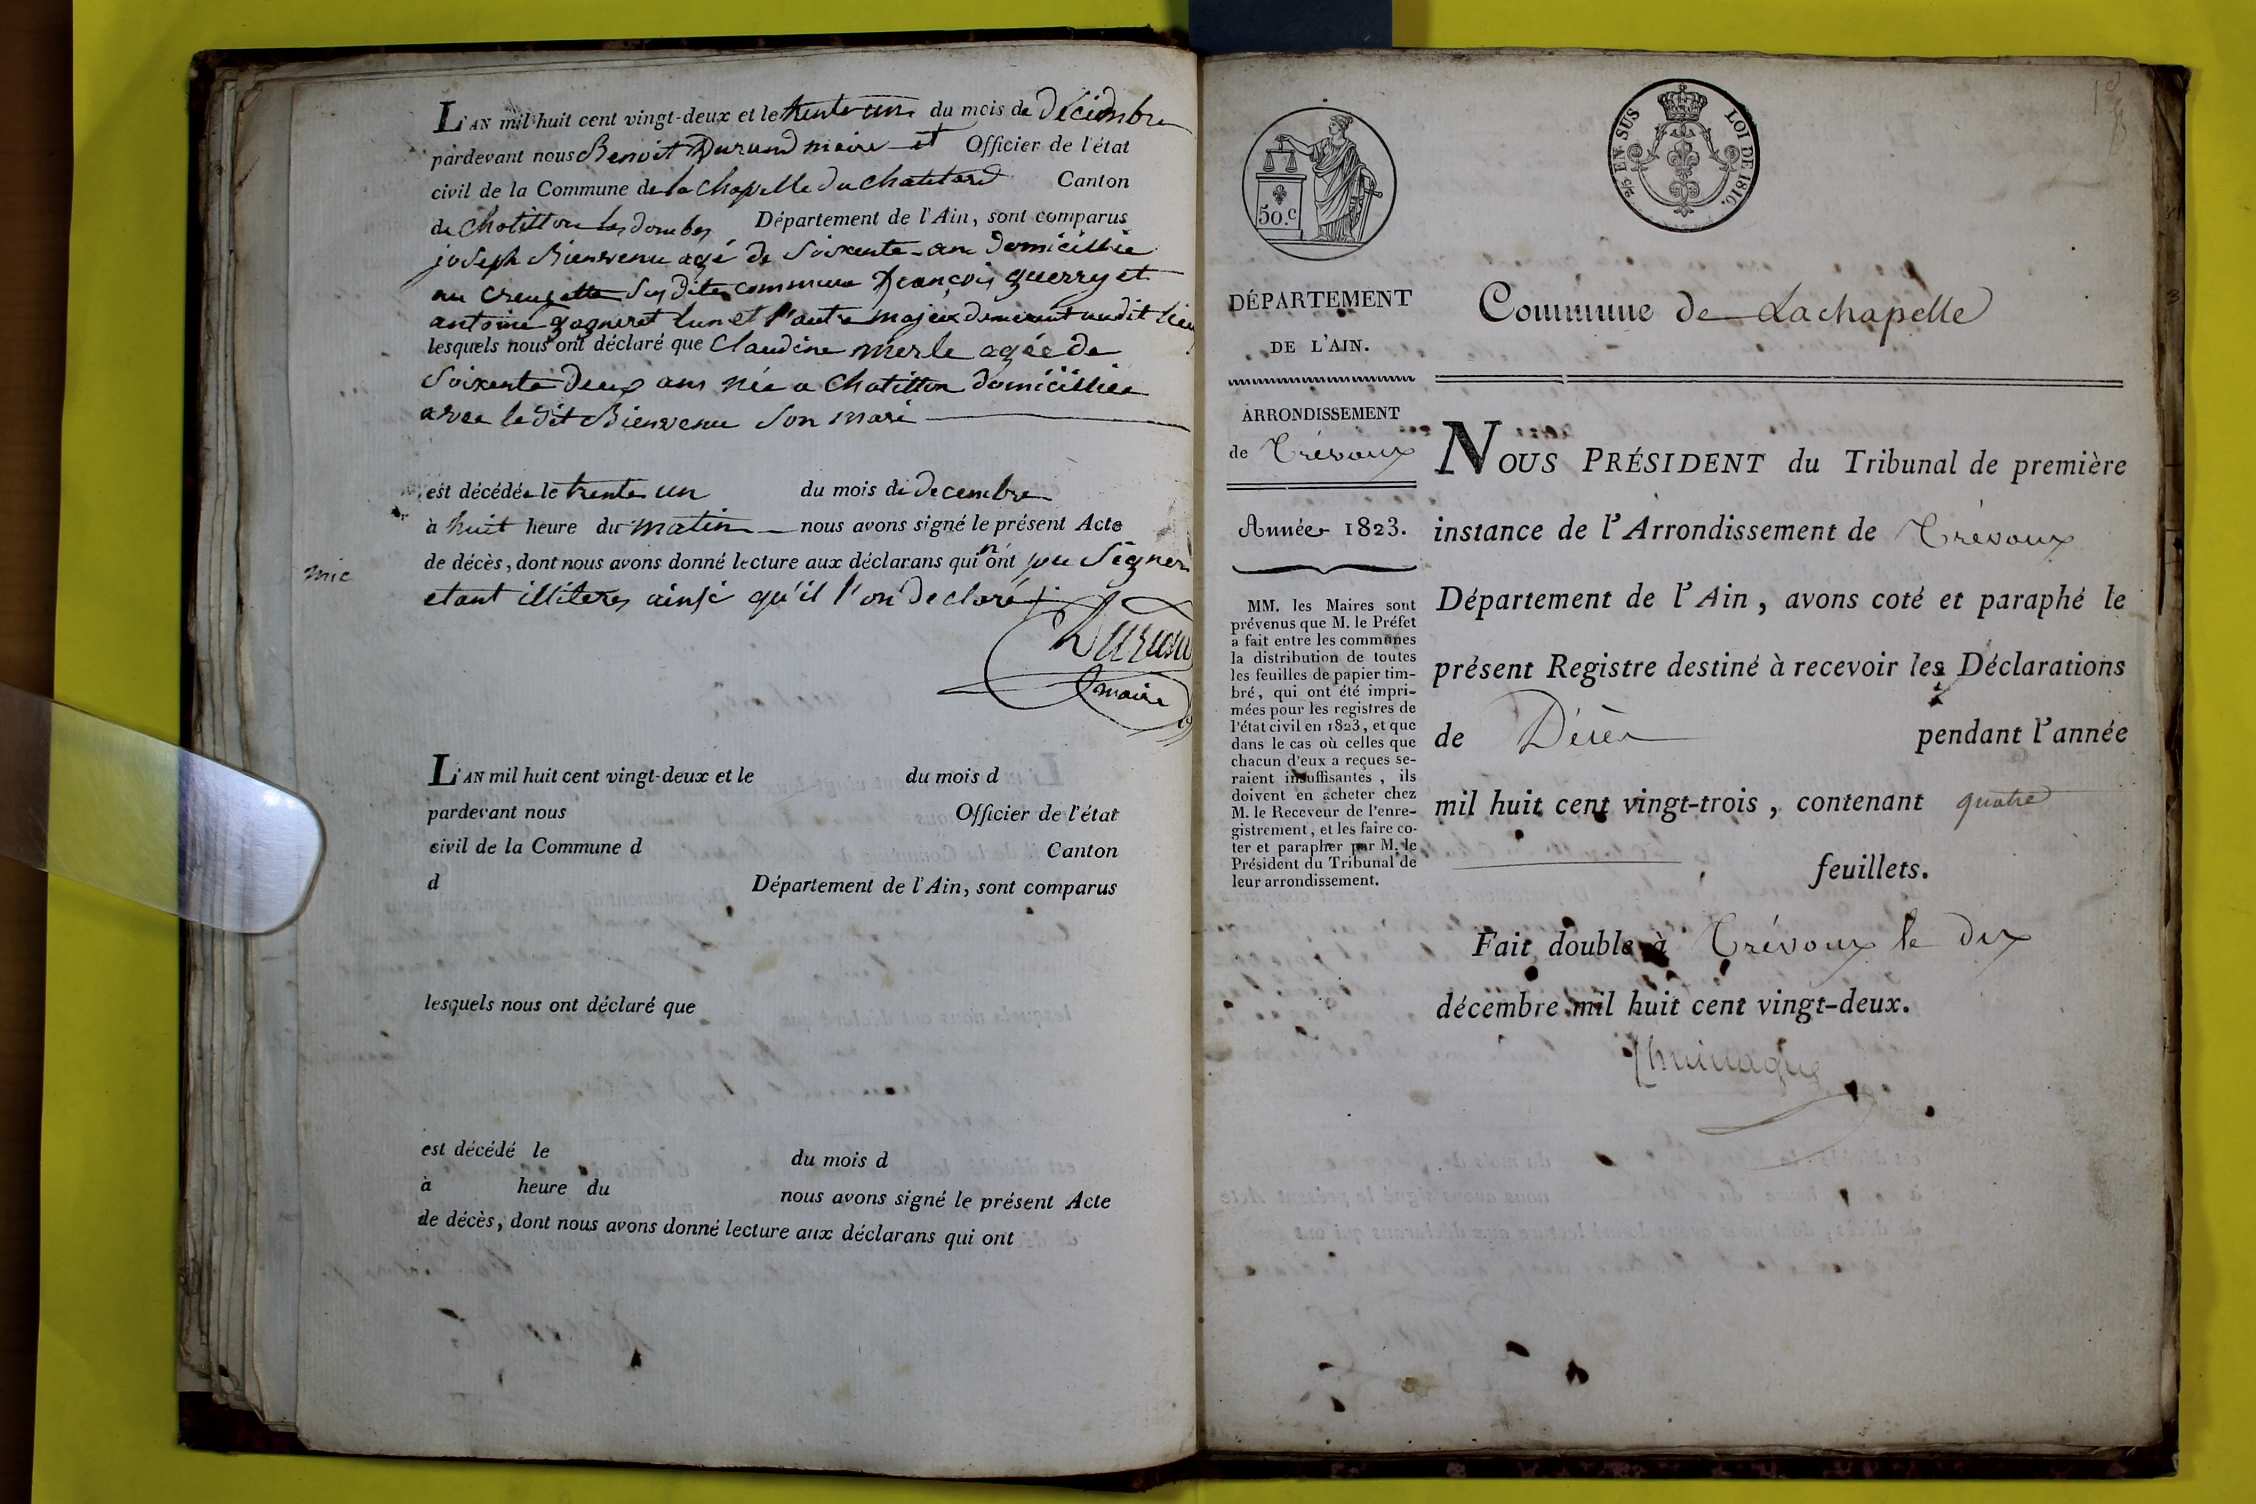 L'AN mil huit cent vingt-deux et le trente un du mois de décembre
pardevant nous Benoit Durand maire et Officier de l'état
civil de la Commune de la chapelle du chatelard Canton
de Chatillon les dombes Département de l'Ain, sont comparus
joseph Bienvenu agé de Soixente an domicillié
au creuzette Susdite commune françois guerry et
antoine gagneret lun et l'autre majeur demeurant audit lieu
lesquels nous ont déclaré que Claudine merle agée de
Soixente deux ans née a Chatillon domicilliée
avec le dit Bienvenu Son mari
est décédée le trente un du mois de decembre
à huit heure du matin nous avons signé le présent Acte
de décès, dont nous avons donné lecture aux déclarans qui n'ont pu Signer
etant illiteres ainsi qu'il l'on declaré
Durand
maire
L'AN mil huit cent vingt-deux et le du mois d
pardevant nous Officier de l'état
civil de la Commune d Canton
d Département de l'Ain, sont comparus
lesquels nous ont déclaré que
est décédé le du mois d
à heure du nous avons signé le présent Acte
de décès, dont nous avons donné lecture aux déclarans qui ont
50.c
EN SUS
LOI DE 1816.
DÉPARTEMENT
DE L'AIN.
ARRONDISSEMENT
de Trévoux
Année 1823.
MM. les Maires sont
prévenus que M. le Préfet
a fait entre les communes
la distribution de toutes
les feuilles de papier tim-
bré, qui ont été impri-
mées pour les registres de
l'état civil en 1823, et que
dans le cas où celles que
chacun d'eux a reçues se-
raient insuffisantes, ils
doivent en acheter chez
M. le Receveur de l'enre-
gistrement, et les faire co-
ter et parapher par M. le
Président du Tribunal de
leur arrondissement.
Commune de Lachapelle
NOUS PRÉSIDENT du Tribunal de première
instance de l'Arrondissement de Trévoux
Département de l'Ain, avons coté et paraphé le
présent Registre destiné à recevoir les Déclarations
de Décès pendant l'année
mil huit cent vingt-trois, contenant quatre
feuillets.
Fait double à Trévoux le dix
décembre mil huit cent vingt-deux.